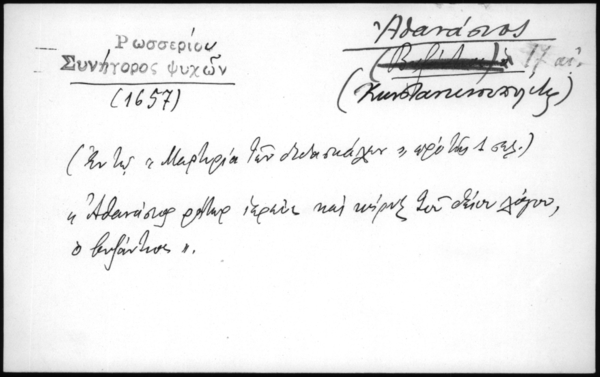 Ρωσσερίου
Συνήγορος ψυχῶν
(1657)
Ἀθανάσιος
17 αἰ.
(Κωνσταντινουπολίτης)
(Ἐν τῇ « Μαρτυρία τῶν διδασκάλων » πρὸ τῆς 1 σελ.)
« Ἀθανάσιος ρήτωρ ἱερεὺς καὶ κήρυξ τοῦ θείου λόγου,
ὁ βυζάντιος ».